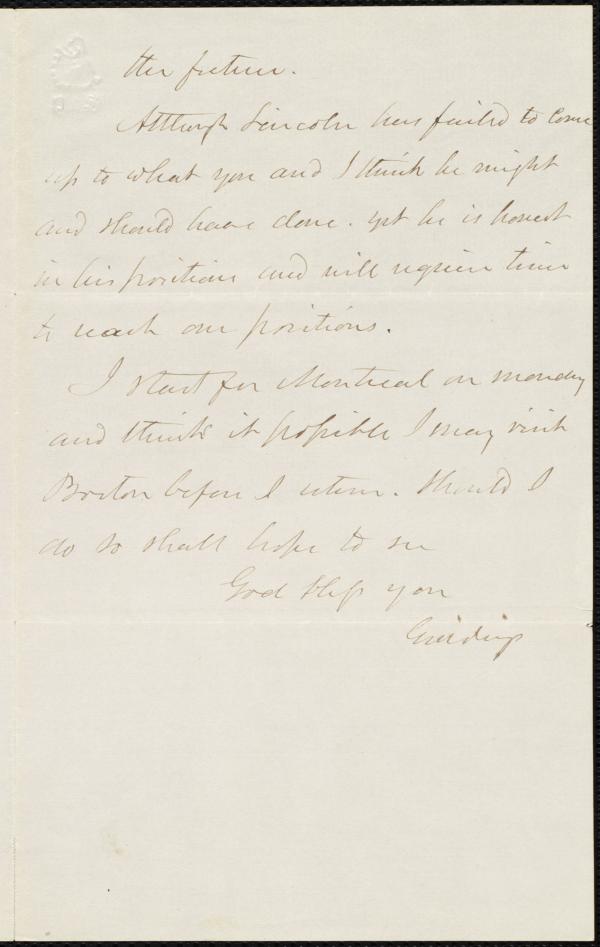 the future.
Although Lincoln has failed to come
up to what you and I think he might
and should have done. yet he is honest
in his position and will require time
to reach our positions.
I start for Montreal on monday
and think it possible I may visit
Boston before I return. Should I
do so shall hope to see
God bless you
Giddings